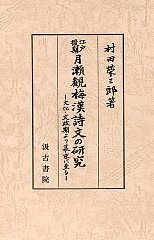 村田榮三郎著
江戸後期
月瀬観梅漢詩文の研究
―文化・文政期より幕末に至る―
汲古書院